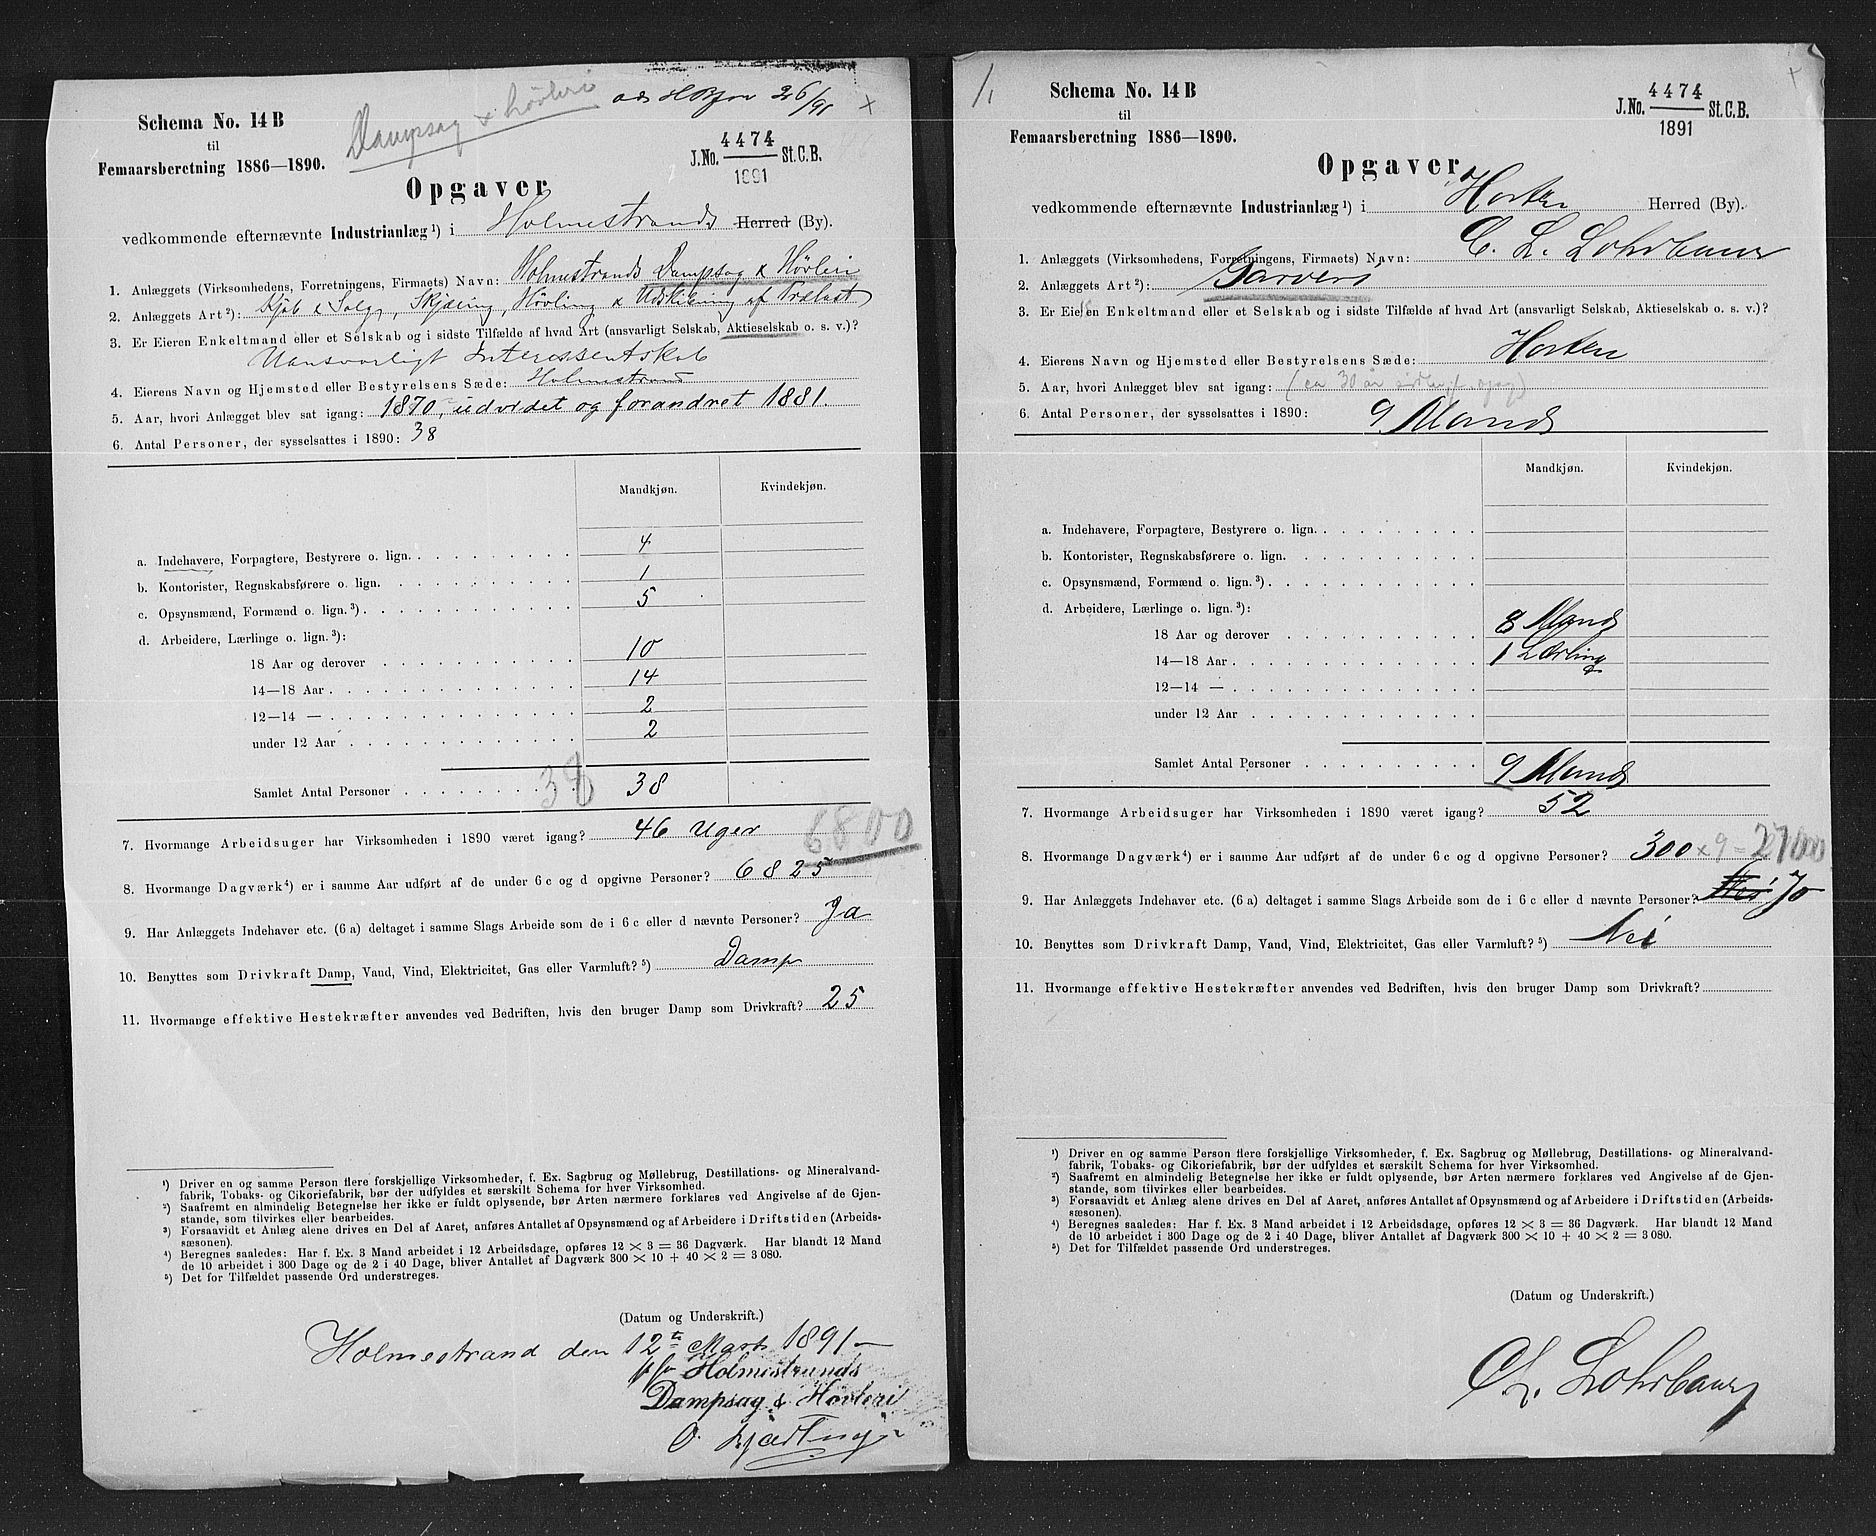 Schema No. 14 B
til
Femaarsberetning 1886—1890.
Dampsag & Høvleri
26/91
J.No. 4474 St.C.B.
1891
Opgaver
vedkommende efternævnte Industrianlæg ¹) i Holmestrands Herred (By).
1. Anlæggets (Virksomhedens, Forretningens, Firmaets) Navn: Holmestrands Dampsag & Høvleri
2. Anlæggets Art ²): Kjøb & Salg, Skjæring, Høvling & Udskibning af Trælast
3. Er Eieren Enkeltmand eller et Selskab og i sidste Tilfælde af hvad Art (ansvarligt Selskab, Aktieselskab o. s. v.)?
Uansvarligt Interessentskab
4. Eierens Navn og Hjemsted eller Bestyrelsens Sæde: Holmestrand
5. Aar, hvori Anlægget blev sat igang: 1870, udvidet og forandret 1881.
6. Antal Personer, der sysselsattes i 1890: 38
Mandkjøn. Kvindekjøn.
a. Indehavere, Forpagtere, Bestyrere o. lign. 4
b. Kontorister, Regnskabsførere o. lign. 1
c. Opsynsmænd, Formænd o. lign. ³) 5
d. Arbeidere, Lærlinge o. lign. ³):
18 Aar og derover 10
14—18 Aar 14
12—14 — 2
under 12 Aar 2
Samlet Antal Personer 38 38
7. Hvormange Arbeidsuger har Virksomheden i 1890 været igang? 46 Uger 6800
8. Hvormange Dagværk ⁴) er i samme Aar udført af de under 6 c og d opgivne Personer? 6825
9. Har Anlæggets Indehaver etc. (6 a) deltaget i samme Slags Arbeide som de i 6 c eller d nævnte Personer? Ja
10. Benyttes som Drivkraft Damp, Vand, Vind, Elektricitet, Gas eller Varmluft? ⁵) Damp
11. Hvormange effektive Hestekræfter anvendes ved Bedriften, hvis den bruger Damp som Drivkraft? 25
¹) Driver en og samme Person flere forskjellige Virksomheder, f. Ex. Sagbrug og Møllebrug, Destillations- og Mineralvand-
fabrik, Tobaks- og Cikoriefabrik, bør der udfyldes et særskilt Schema for hver Virksomhed.
²) Saafremt en almindelig Betegnelse her ikke er fuldt oplysende, bør Arten nærmere forklares ved Angivelse af de Gjen-
stande, som tilvirkes eller bearbeides.
³) Forsaavidt et Anlæg alene drives en Del af Aaret, anføres Antallet af Opsynsmænd og af Arbeidere i Driftstiden (Arbeids-
sæsonen).
⁴) Beregnes saaledes: Har f. Ex. 3 Mand arbeidet i 12 Arbeidsdage, opføres 12 × 3 = 36 Dagværk. Har blandt 12 Mand
de 10 arbeidet i 300 Dage og de 2 i 40 Dage, bliver Antallet af Dagværk 300 × 10 + 40 × 2 = 3 080.
⁵) Det for Tilfældet passende Ord understreges.
(Datum og Underskrift.)
Holmestrand den 12te Marts 1891
Holmestrands
Dampsag & Høvleri
O.
Schema No. 14 B
til
Femaarsberetning 1886—1890.
J.No. 4474 St.C.B.
1891
Opgaver
vedkommende efternævnte Industrianlæg ¹) i Horten Herred (By).
1. Anlæggets (Virksomhedens, Forretningens, Firmaets) Navn: C. L. Lohrbauer
2. Anlæggets Art ²): Garveri
3. Er Eieren Enkeltmand eller et Selskab og i sidste Tilfælde af hvad Art (ansvarligt Selskab, Aktieselskab o. s. v.)?
4. Eierens Navn og Hjemsted eller Bestyrelsens Sæde: Horten
5. Aar, hvori Anlægget blev sat igang: (ca 30 år
6. Antal Personer, der sysselsattes i 1890: 9 Mand
Mandkjøn. Kvindekjøn.
a. Indehavere, Forpagtere, Bestyrere o. lign.
b. Kontorister, Regnskabsførere o. lign.
c. Opsynsmænd, Formænd o. lign. ³)
d. Arbeidere, Lærlinge o. lign. ³):
18 Aar og derover 8 Mand
14—18 Aar 1 Lærling
12—14 —
under 12 Aar
Samlet Antal Personer 9 Mand
7. Hvormange Arbeidsuger har Virksomheden i 1890 været igang? 52
8. Hvormange Dagværk ⁴) er i samme Aar udført af de under 6 c og d opgivne Personer? 300 × 9 = 2700
9. Har Anlæggets Indehaver etc. (6 a) deltaget i samme Slags Arbeide som de i 6 c eller d nævnte Personer? Nei Jo
10. Benyttes som Drivkraft Damp, Vand, Vind, Elektricitet, Gas eller Varmluft? ⁵) Nei
11. Hvormange effektive Hestekræfter anvendes ved Bedriften, hvis den bruger Damp som Drivkraft?
¹) Driver en og samme Person flere forskjellige Virksomheder, f. Ex. Sagbrug og Møllebrug, Destillations- og Mineralvand-
fabrik, Tobaks- og Cikoriefabrik, bør der udfyldes et særskilt Schema for hver Virksomhed.
²) Saafremt en almindelig Betegnelse her ikke er fuldt oplysende, bør Arten nærmere forklares ved Angivelse af de Gjen-
stande, som tilvirkes eller bearbeides.
³) Forsaavidt et Anlæg alene drives en Del af Aaret, anføres Antallet af Opsynsmænd og af Arbeidere i Driftstiden (Arbeids-
sæsonen).
⁴) Beregnes saaledes: Har f. Ex. 3 Mand arbeidet i 12 Arbeidsdage, opføres 12 × 3 = 36 Dagværk. Har blandt 12 Mand
de 10 arbeidet i 300 Dage og de 2 i 40 Dage, bliver Antallet af Dagværk 300 × 10 + 40 × 2 = 3 080.
⁵) Det for Tilfældet passende Ord understreges.
(Datum og Underskrift.)
C L. Lohrbauer